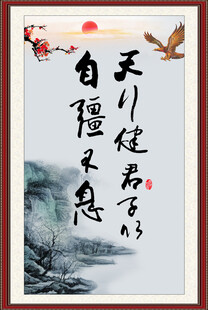 天行健君子以
自疆不息